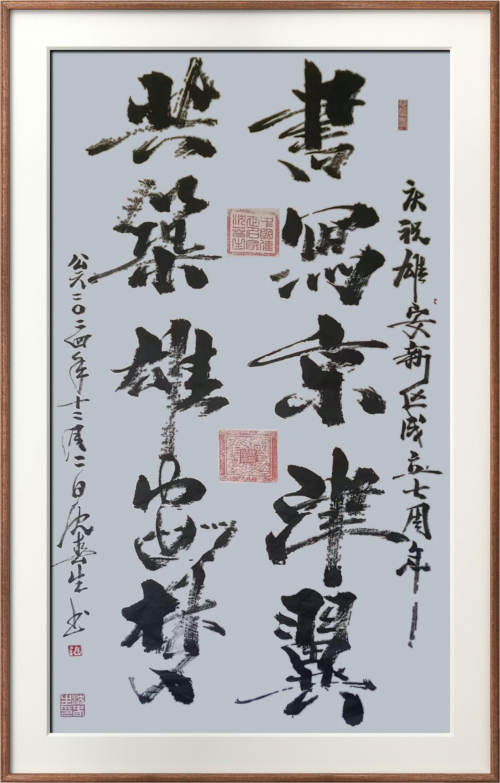 庆祝雄安新区成立七周年
書寫京津翼
共築雄安梦
公元二〇二四年十二月二日沈春生书